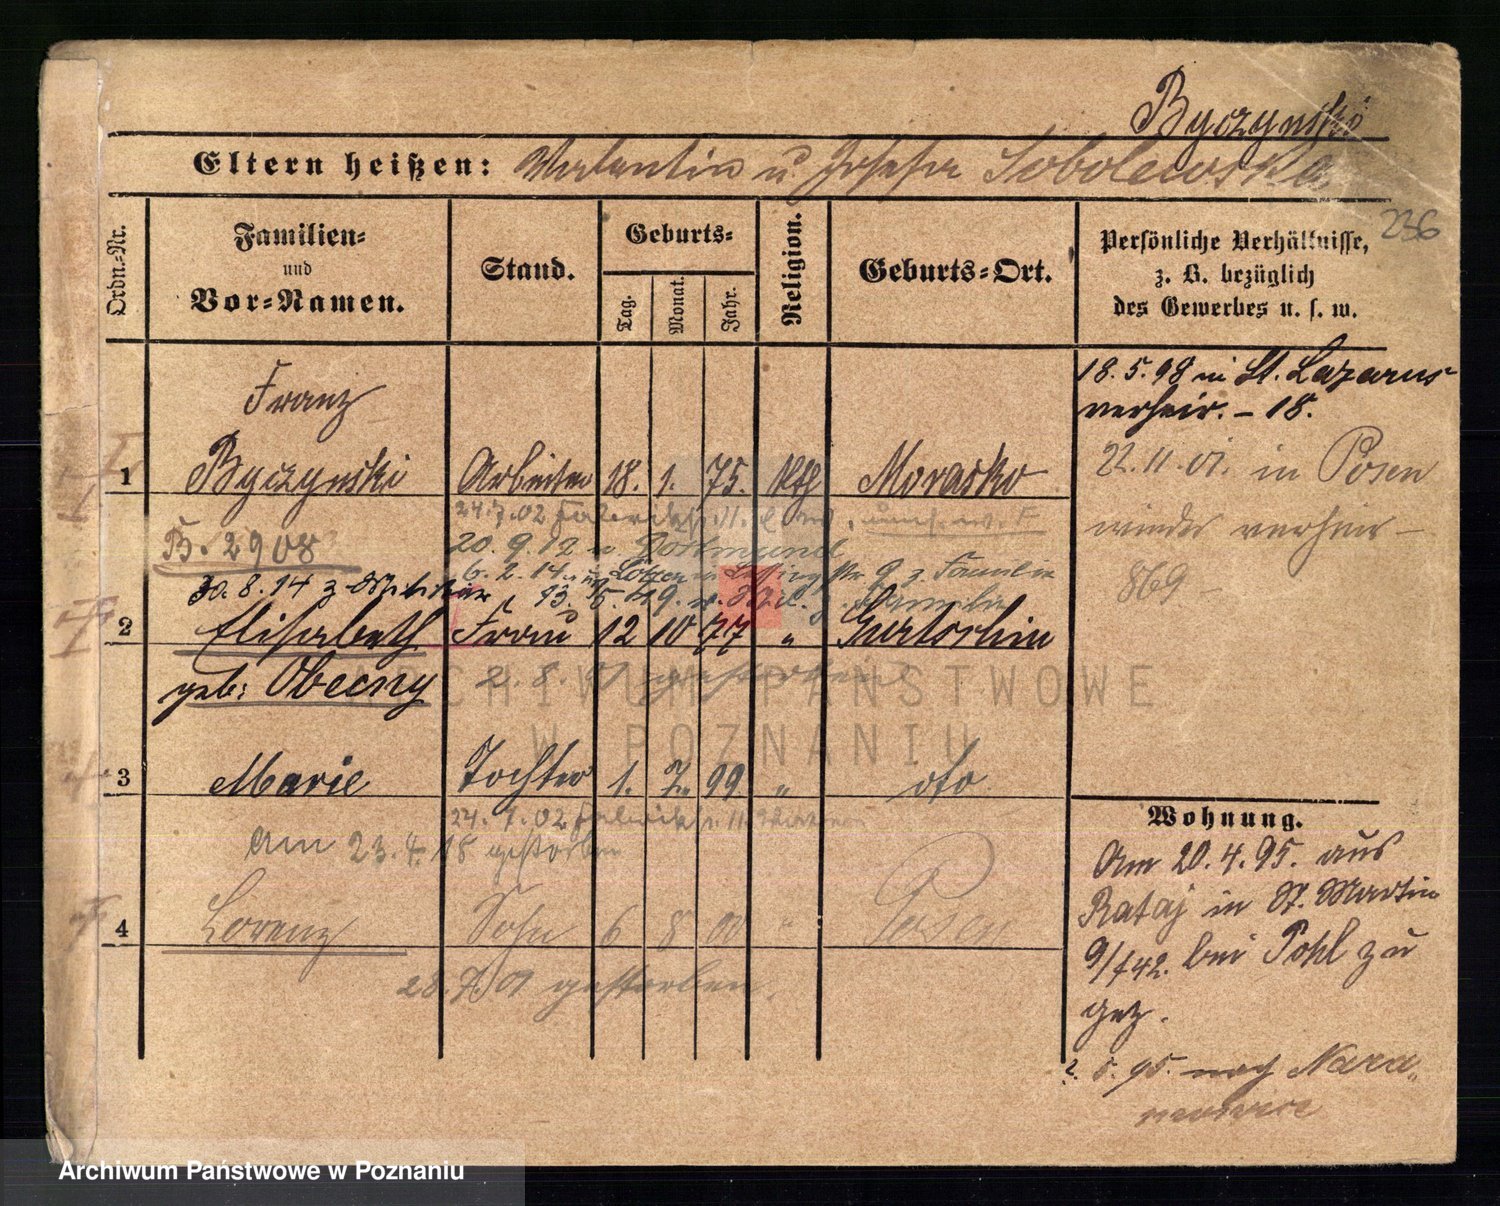 Byczynski
Eltern heißen: Valentin u. Josefa Sobolewska
236
Ordn.-Nr.
Familien-
und
Vor-Namen.
Stand.
Geburts-
Tag.
Monat.
Jahr.
Religion.
Geburts-Ort.
Persönliche Verhältnisse,
z. B. bezüglich
des Gewerbes u. s. w.
18. 5. 98 in St. Lazarus
verheir. - 18.
22. 11. 01. in Posen
wieder verheir-
869
Franz
1 Byczynski Arbeiter 18. 1. 75. kth Morasko
24. 7. 02
B. 2908
20. 9. 12 n. Dortmund
6. 2. 14 Familie
30. 8. 14 z. 13. 5. 19. Familie
2 Elisabeth Frau 12 10 77 "
geb: Obecny
gestorben
3 Marie Tochter 1. 7. 99 " dto
24. 7. 02
am 23. 4. 18 gestorben
4 Lorenz Sohn 6 8 00 " Posen
28. 7. 01 gestorben.
Wohnung.
Am 20. 4. 95. aus
Rataj in St. Martin
9/ 42. bei Pohl zu
gez.
5. 95. nach Nara-
mowice
ARCHIWUM PAŃSTWOWE
W POZNANIU
Archiwum Państwowe w Poznaniu